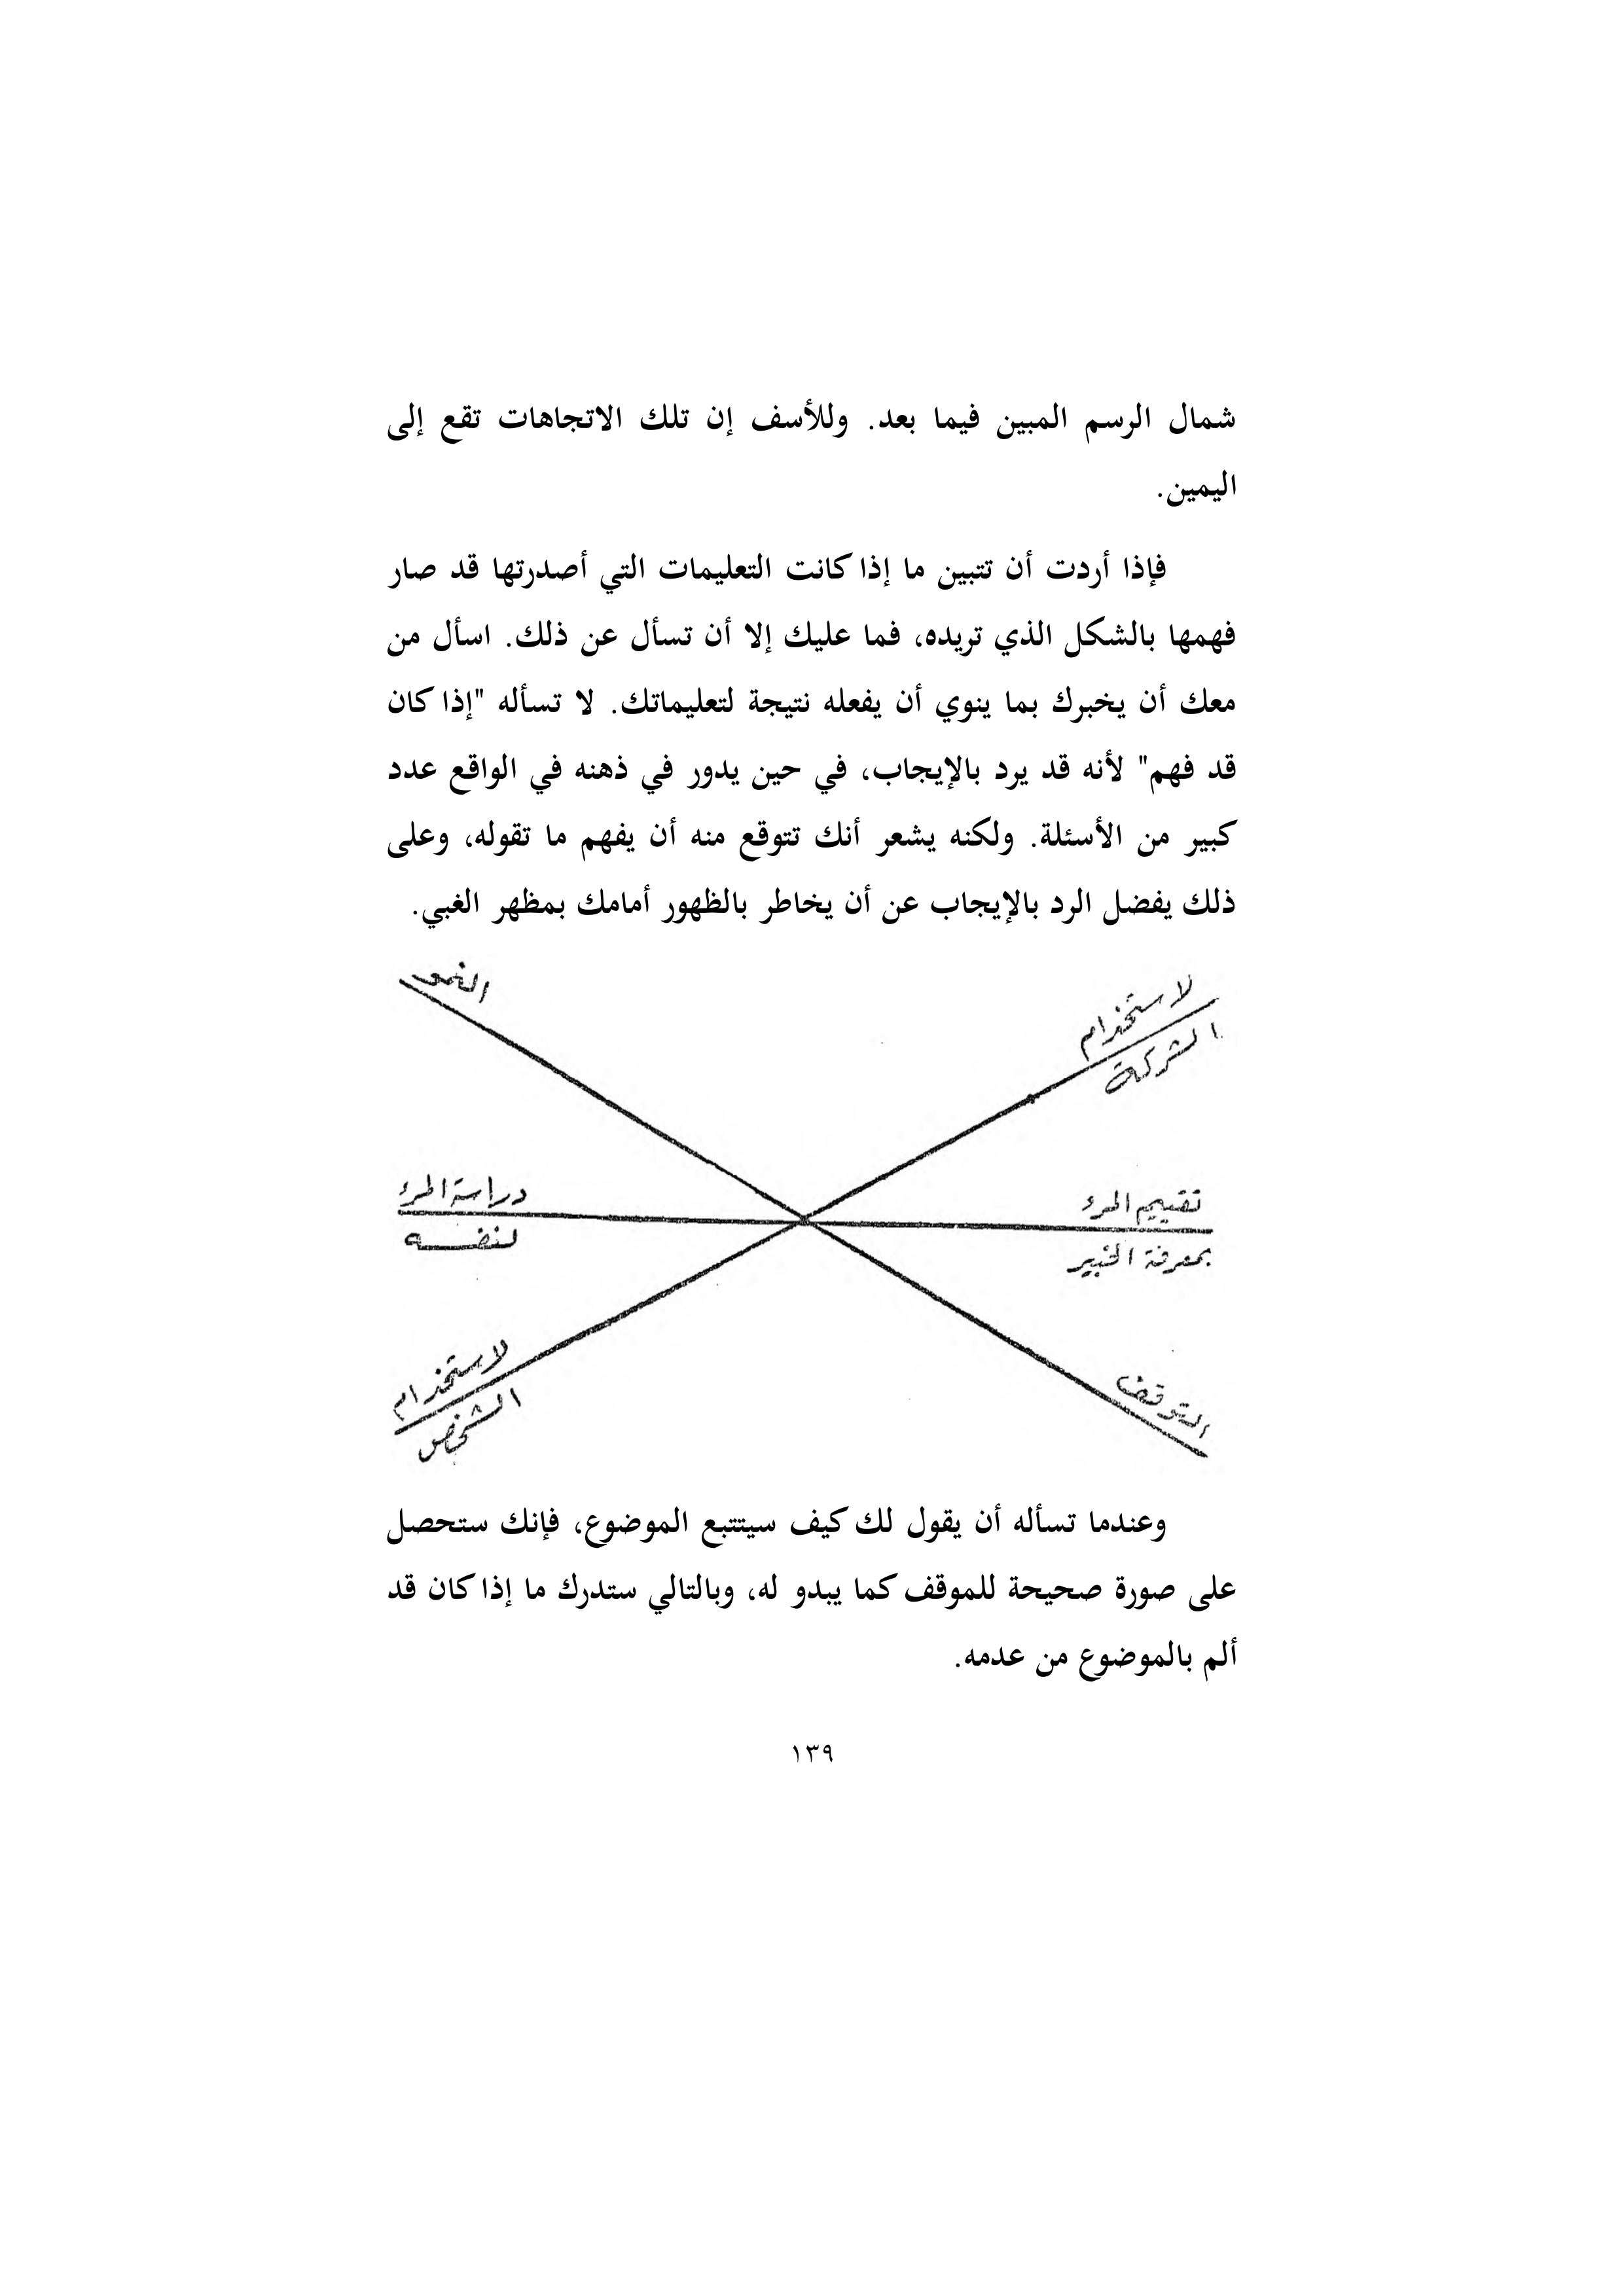 شمال الرسم المبين فيما بعد. وللأسف إن تلك الاتجاهات تقع إلى
اليمين.
فإذا أردت أن تتبين ما إذا كانت التعليمات التي أصدرتها قد صار
فهمها بالشكل الذي تريده، فما عليك إلا أن تسأل عن ذلك. اسأل من
معك أن يخبرك بما ينوي أن يفعله نتيجة لتعليماتك. لا تسأله "إذا كان
قد فهم" لأنه قد يرد بالإيجاب، في حين يدور في ذهنه في الواقع عدد
كبير من الأسئلة. ولكنه يشعر أنك تتوقع منه أن يفهم ما تقوله، وعلى
ذلك يفضل الرد بالإيجاب عن أن يخاطر بالظهور أمامك بمظهر الغبي.
لاستخدام
الشركة
النمو
تقييم المرء
بمعرفة الخبير
دراسة المرء
لنفسه
التوقف
لاستخدام
الشخص
وعندما تسأله أن يقول لك كيف سيتتبع الموضوع، فإنك ستحصل
على صورة صحيحة للموقف كما يبدو له، وبالتالي ستدرك ما إذا كان قد
ألم بالموضوع من عدمه.
١٣٩